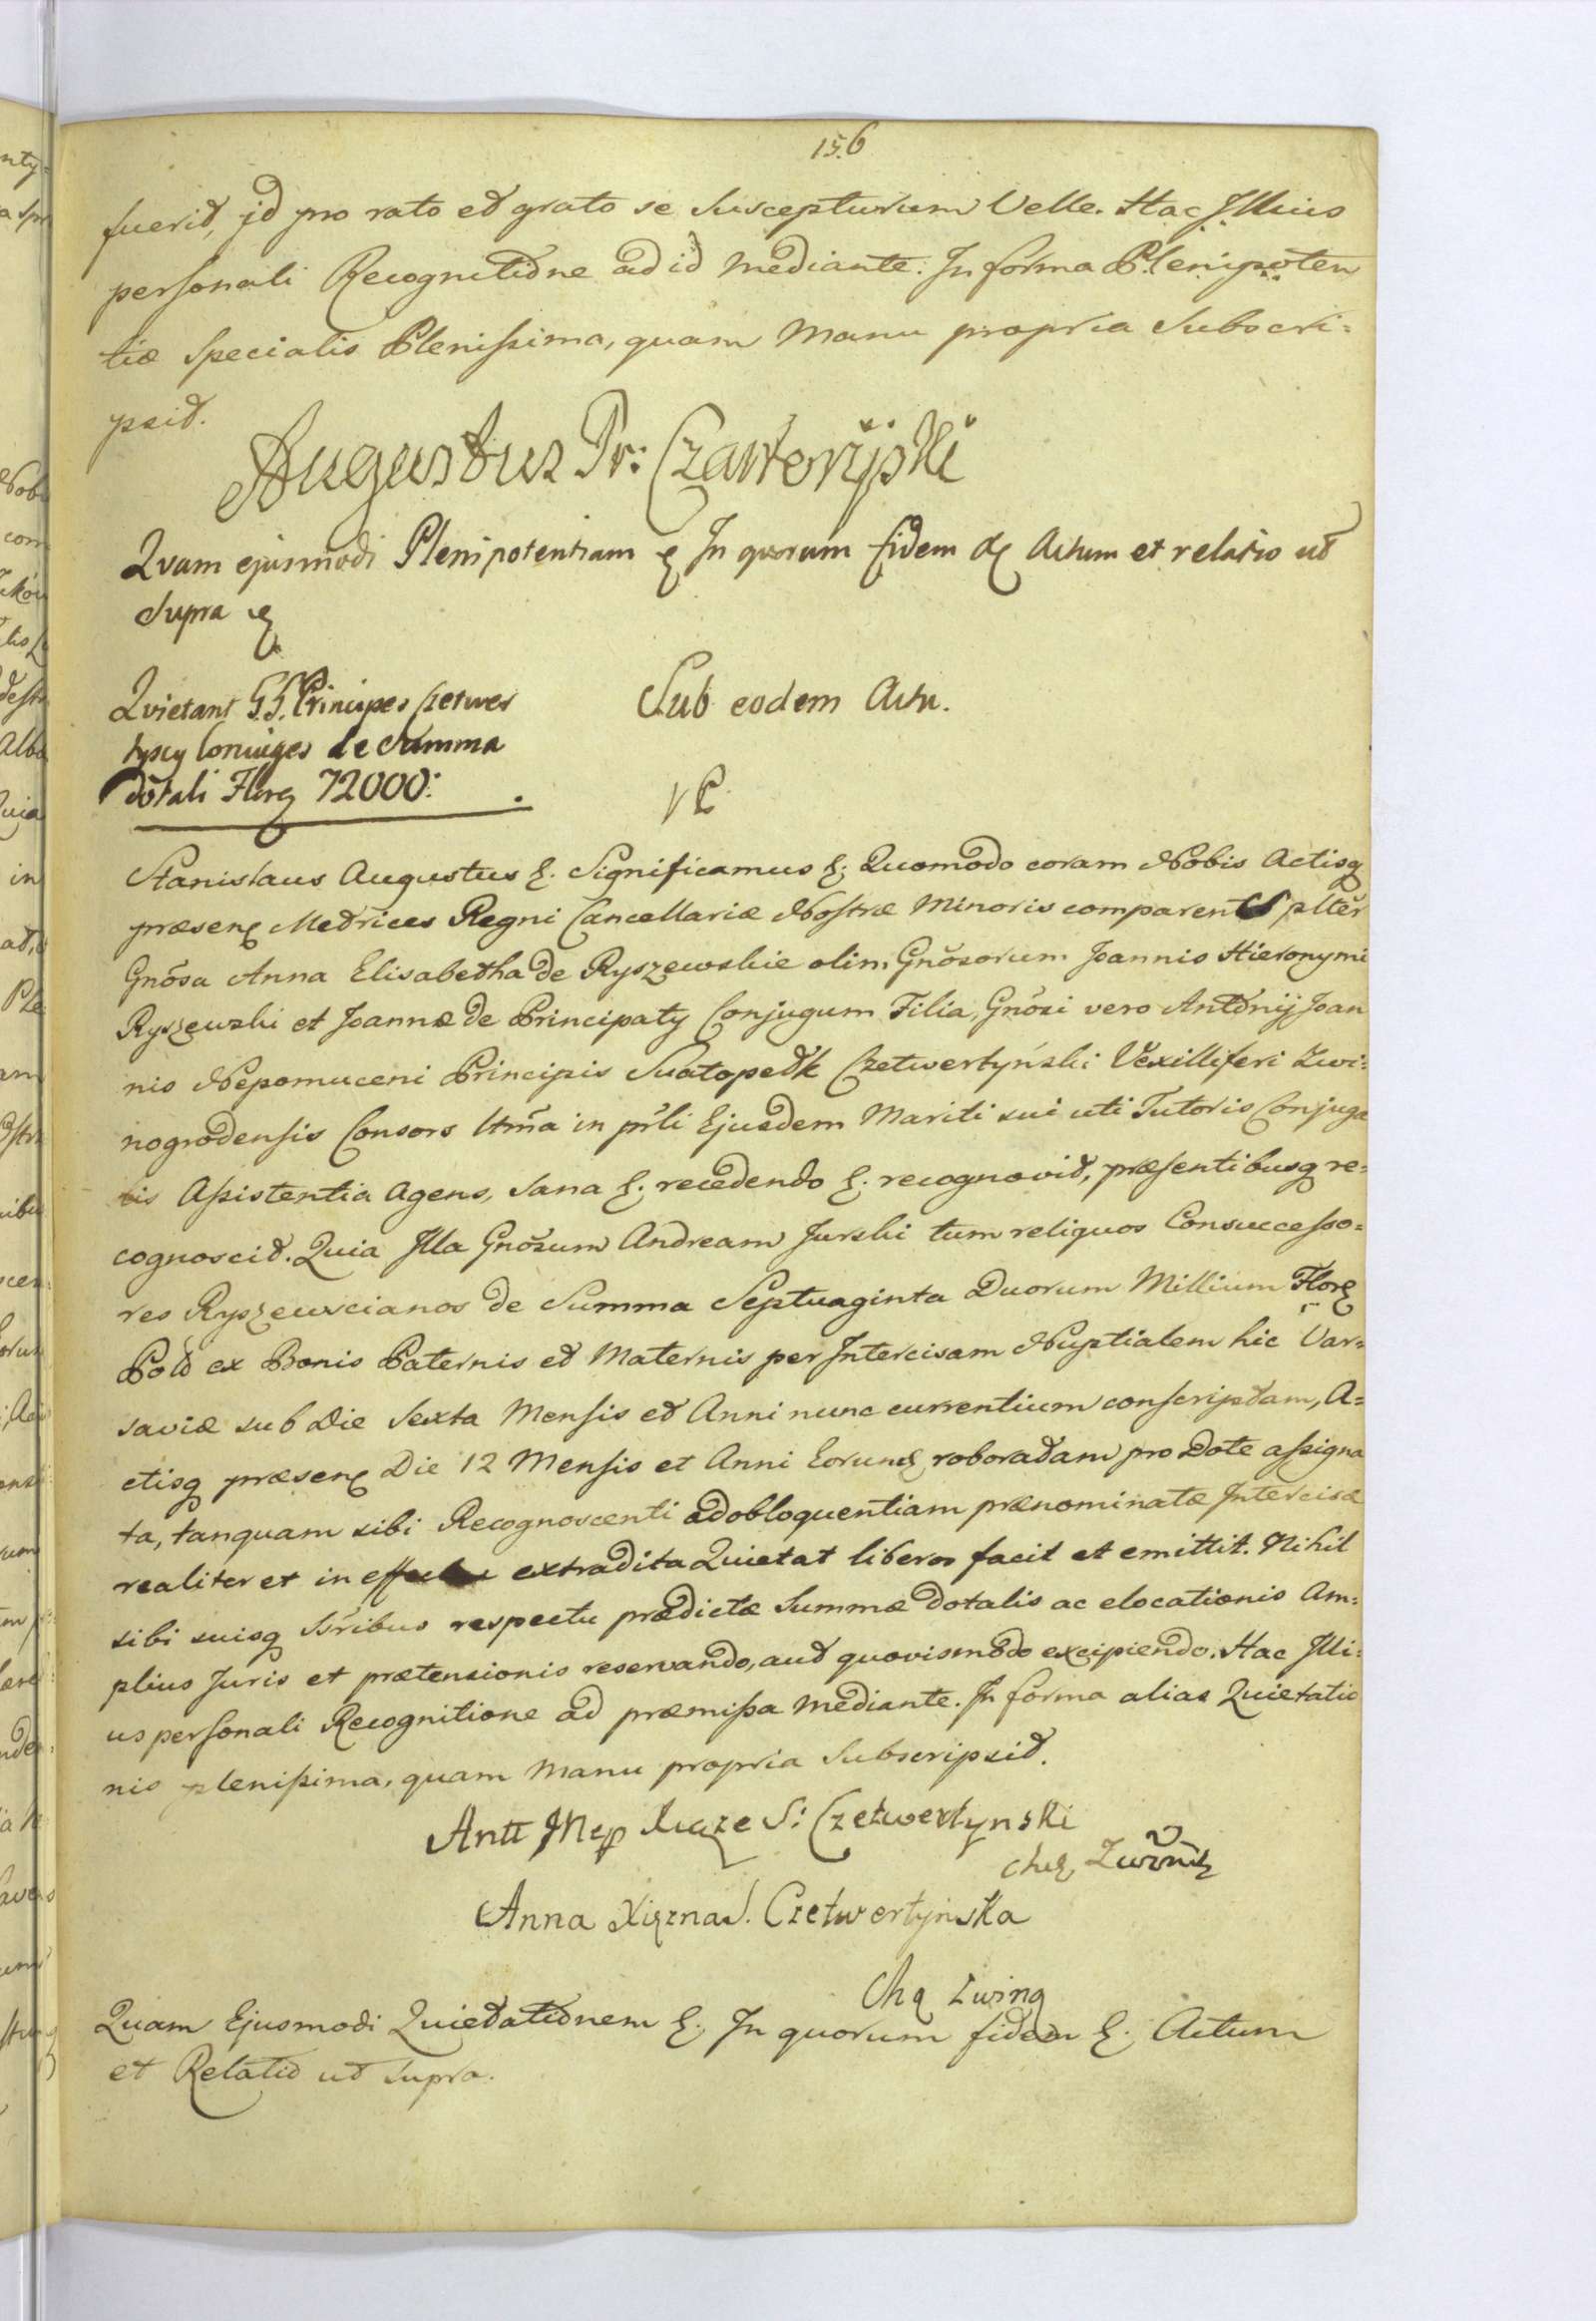 156
fuerit, id pro rato et grato se Suscepturum Velle. Hac Illius
personali Recognitione ad id mediante. In forma Plenipoten
tiæ Specialis Plenissima, quam Manu propria Subscri=
psit.
Augustus Pr: Czartoryski
Quam ejusmodi Plenipotentiam & In quorum fidem & Actum et relatio ut
Supra &
Quietant G.G. Principes Czetwer
tyscy Coniuges de Summa
dotali Floreg 72000:
Sub eodem Actu.
Stanislaus Augustus &. Significamus &. Quomodo coram Nobis Actisq
præseng Metrices Regni Cancellariæ Nostræ Minoris comparens plter
Gnosa Anna Elisabetha de Ryszewskie olim Gnosorum Joannis Hieronymi
Ryszewski et Joannæ de Principaty Conjugum Filia, Gnosi vero Antonij Joan
nis Nepomuceni Principis Suatopełk Czetwertyński Vexilliferi Zwi=
nogrodensis Consors Ittma in prli Ejusdem Mariti sui uti Tutoris Conjuga
lis Assistentia Agens, Sana &. recedendo &. recognovit, præsentibusq re=
cognoscit. Quia Illa Gnosum Andream Jurski tum reliquos Consuccesso=
res Ryszewscianos de Summa Septuaginta Duorum Millium Floreg
Pold ex Bonis Paternis et Maternis per Intercisam Nuptialem hic Var=
saviæ sub Die Sexta Mensis et Anni nunc currentium conscriptam, A=
ctisq præseng Die 12 Mensis et Anni Eorundg roboratam pro Dote assigna
ta, tanquam sibi Recognoscenti ad obloquentiam prænominatæ Intercisæ
realiter et in effectu extradita Quietat liberos facit et emittit. Nihil
sibi suisq Ssribus respectu prædictæ Summæ dotalis ac elocationis Am=
plius Juris et prætensionis reservando, aut quovismodo excipiendo. Hac Illi=
us personali Recognitione ad præmissa mediante. In forma alias Quietatio
nis plenissima, quam Manu propria Subscripsit.
Antt JNep Xiąże S: Czetwertynski
Anna Xiężna S. Czetwertyńska
Chą Zwing
Quam Ejusmodi Quietationem &. In quorum fidem &. Actum
et Relatio ut supra.